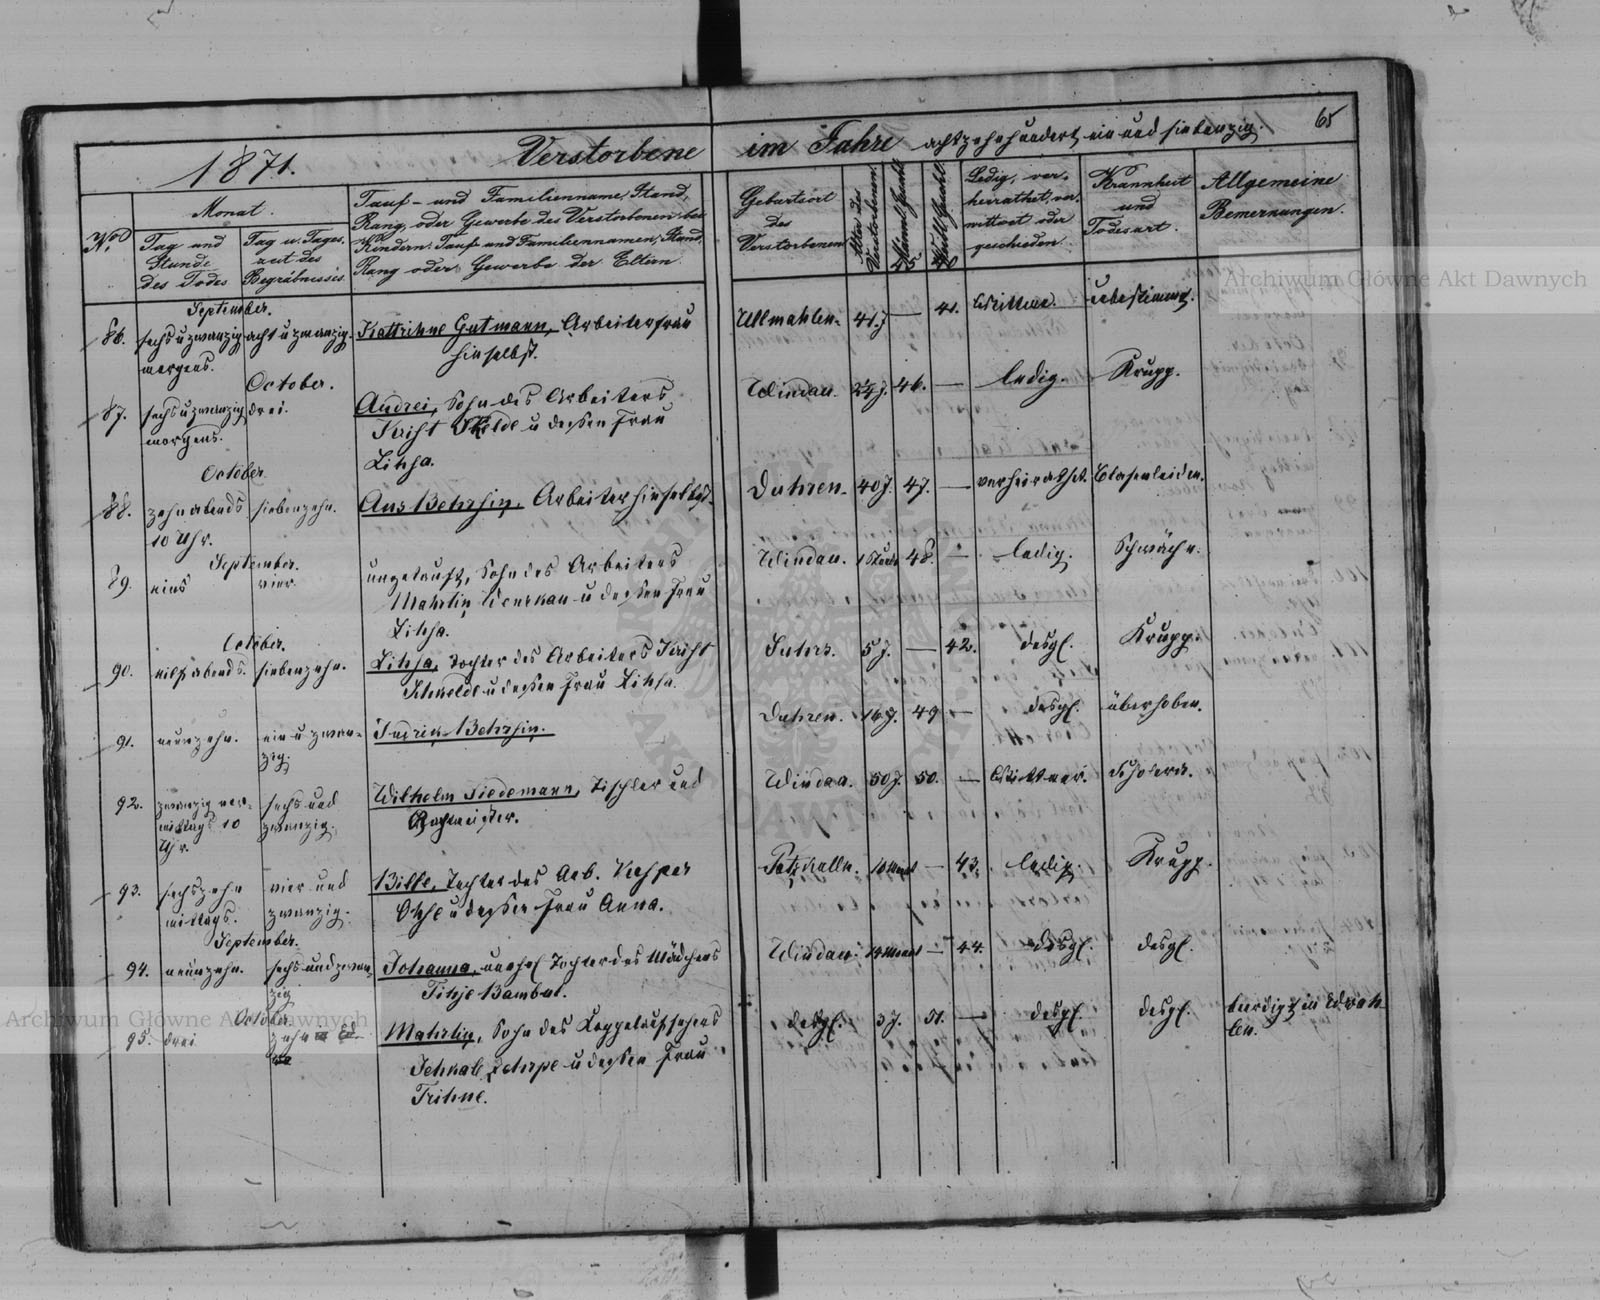 65
1871.
Verstorbene im Jahre achtzehnhundert ein und siebenzig.
No.
Monat.
Tag und
Stunde
des Todes
Tag u. Tages-
zeit des
Begräbnisses.
Tauf- und Familienname, Stand,
Rang, oder Gewerbe des Verstorbenen bei
Kindern: Tauf und Familiennamen, Stand,
Rang oder Gewerbe der Eltern.
Geburtsort
des
Verstorbenen
Alter des
Verstorbenen.
Männl. Geschl.
45
Weibl. Geschl.
40
Ledig, ver-
heirathet, ver-
wittwet oder
geschieden.
Krankheit
und
Todesart.
Allgemeine
Bemerkungen.
September.
86. sechs u zwanzig acht u zwanzig. Kattrihne Gutmann, Arbeiterfrau Ullmahlen. 41 J. — 41. Wittwe. unbestimmt.
morgens. hieselbst.
October.
87. sechs u zwanzig drei. Andrei, Sohn des Arbeiters Windau. 46. — ledig. Krupp.
morgens. Krist u dessen Frau
Lihsa.
October
88. zehn abends siebenzehn. Ans Behrsin, Arbeiter hieselbst. Duhren. 40 J. 47. — verheirathet. Blasenleiden.
10 Uhr.
September.
89. eins vier. ungetauft, Sohn des Arbeiters Windau. 1 Stunde 48. — ledig. Schwäche.
Mahrtin u dessen Frau
Lihsa.
October.
90. eilf abends. siebenzehn. Lihsa, Tochter des Arbeiters Krist 5 J. — 42. desgl. Krupp.
u dessen Frau Lihsa.
91. neunzehn. ein u zwan- Indrik Behrsin. Duhren. 16 J. 49 — desgl. überhoben.
zig.
92. zwanzig vor- sechs und Wilhelm Tiedemann, Tischler und Windau. 50 J. 50. — Wittwer. Cholera.
mittags 10 zwanzig.
Uhr.
93. sechszehn vier und Bille, Tochter des Arb. Kaspar 10 Monat — 43. ledig Krupp.
mittags. zwanzig. u dessen Frau Anna.
September.
94. neunzehn. sechs und zwan- Johanna, unehel Tochter des Mädchens Windau. Monat — 44. desgl. desgl.
zig Tihje Bambal.
October
95. drei zehn Mahrtin, Sohn des desgl. 3 J. 51. — desgl. desgl. beerdigt in Edwah-
u dessen Frau len.
Trihne.
Archiwum Główne Akt Dawnych
Archiwum Główne Akt Dawnych